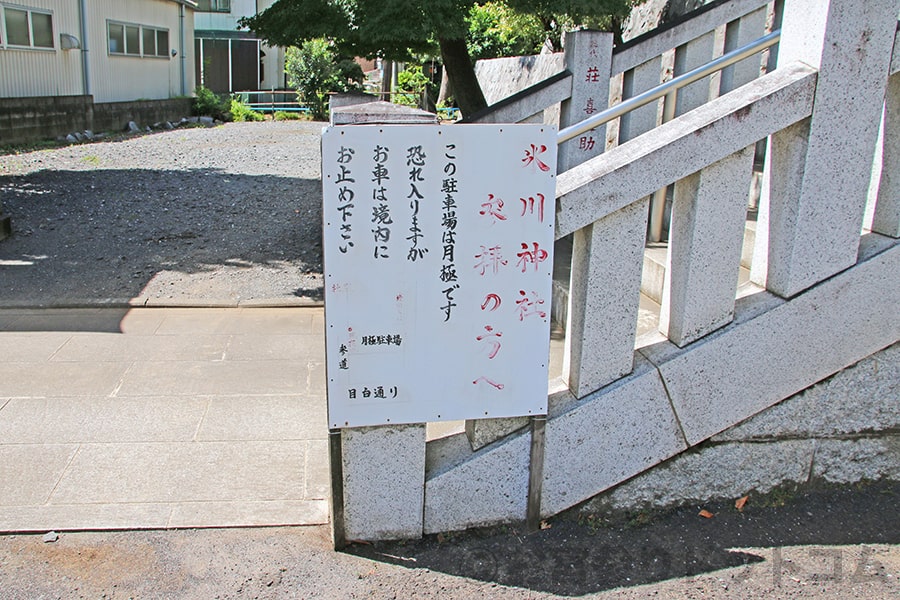 氷川神社
参拝の方へ
この駐車場は月極です
恐れ入りますが
お車は境内に
お止め下さい
月極駐車場
参道
目白通り
荘喜助